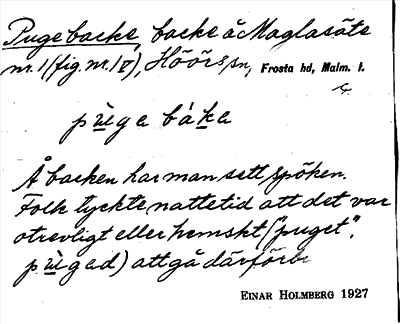 Pugebacke, backe å Maglasäte
nr. 1 (fig. nr. 1 V), Höörs sn, Frosta hd, Malm. l.
pùga bàka
Å backen har man sett spöken.
Folk tyckte nattetid att det var
otrevligt eller hemskt, ("puget",
pùgad) att gå därförbi
EINAR HOLMBERG 1927